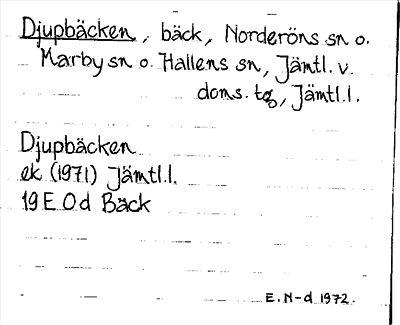 Djupbäcken, bäck, Norderöns sn o.
Marby sn o. Hallens sn, Jämtl. v.
doms. tg, Jämtl.l.
Djupbäcken
ek (1971) Jämtl.l.
19E 0d Bäck
E.N-d 1972.